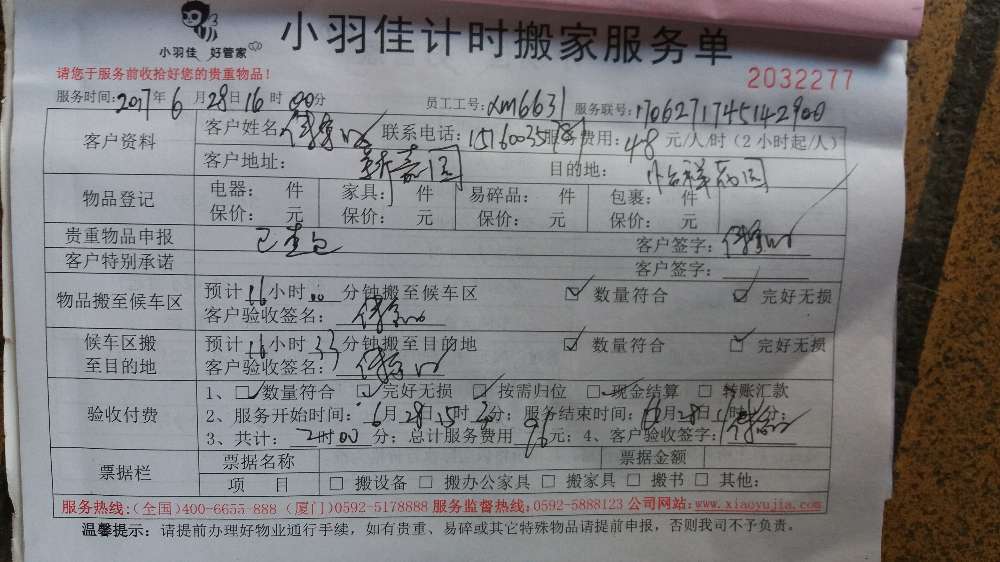 小羽佳 好管家
小羽佳计时搬家服务单
请您于服务前收拾好您的贵重物品！
2032277
服务时间：2017年6月28日16时00分 员工工号：xm6631 服务联号：1706271745142900
客户资料
客户姓名： 联系电话： 服务费用：48元/人/时（2小时起/人）
客户地址： 目的地：
物品登记
电器： 件 家具： 件 易碎品： 件 包裹： 件
保价： 元 保价： 元 保价： 元 保价： 元
贵重物品申报 客户签字：
客户特别承诺 客户签字：
物品搬至候车区
预计16小时 分钟搬至候车区 数量符合 完好无损
客户验收签名：
候车区搬至目的地
预计16小时33分钟搬至目的地 数量符合 完好无损
客户验收签名：
验收付费
1、 数量符合 完好无损 按需归位 现金结算 转账汇款
2、服务开始时间：6月28日 时 分；服务结束时间： 月28日 时 分；
3、共计：2时00分；总计服务费用96元；4、客户验收签字：
票据栏
票据名称 票据金额
项目 搬设备 搬办公家具 搬家具 搬书 其他：
服务热线：(全国)400-6655-888 (厦门)0592-5178888 服务监督热线：0592-5888123 公司网站：www.xiaoyujia.com
温馨提示：请提前办理好物业通行手续，如有贵重、易碎或其它特殊物品请提前申报，否则我司不予负责。